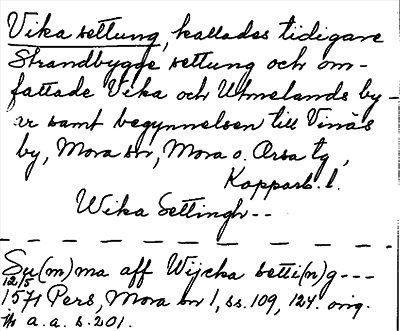 Vika settung, kallades tidigare
Strandbygge settung och om-
fattade Vika och Utmelands by-
ar samt begynnelsen till Vinäs
by, Mora sn, Mora o. Orsa tg,
Kopparb. l.
Wika Settingh--
Su(m)ma aff Wijcka setti(n)g---
12/5
1571 Pers, Mora sn 1, ss. 109, 124. orig.
a. a. s. 201.